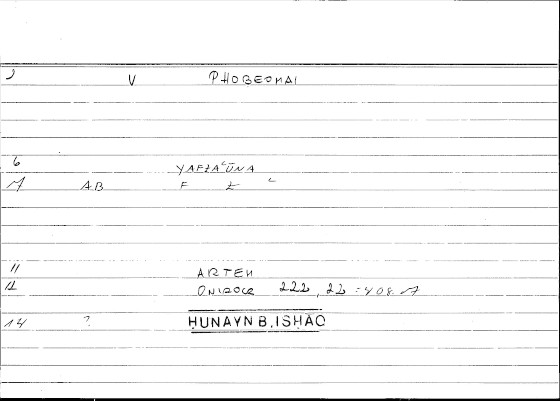 2 V PHOBEOMAI
6 YAFZAʿŪNA
7 AB F Z ʿ
11 ARTEM
12 ONIROCR 222, 22 = 408.7
14 ? ḤUNAYN B. ISḤĀQ